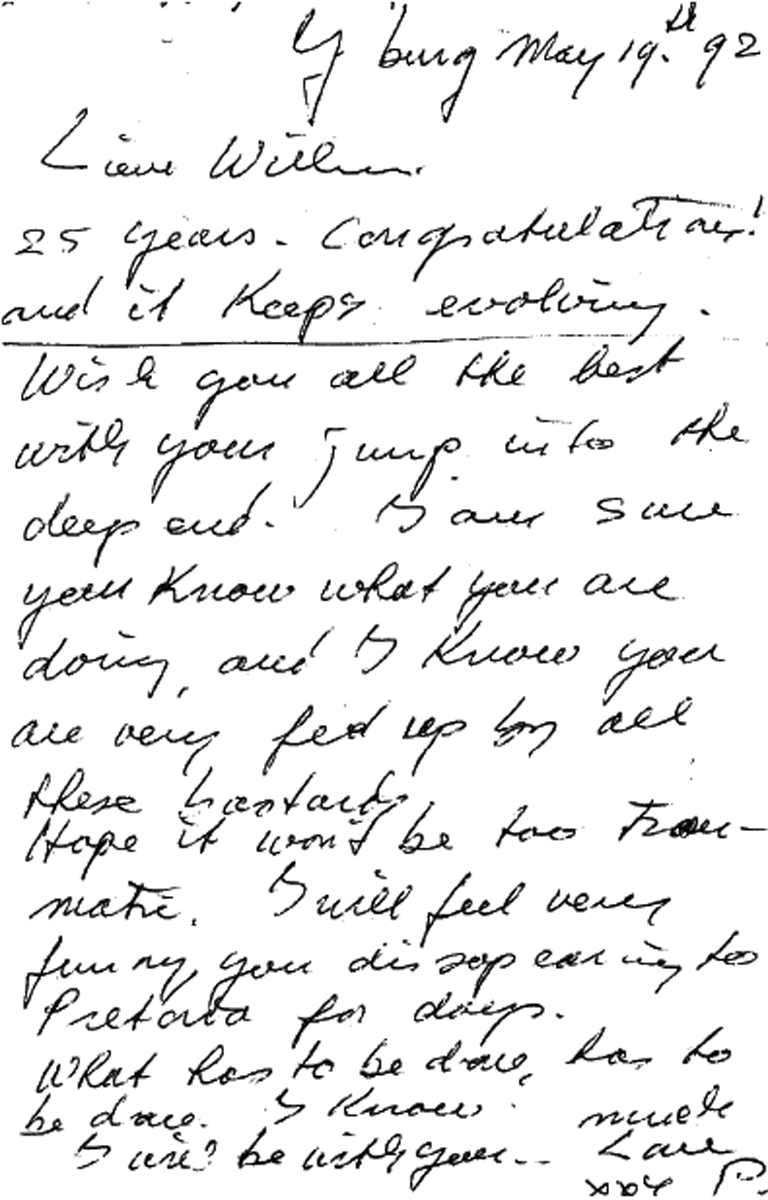 J burg May 19.th 92
Lieve Willem.
25 years. Congratulations!
and it keeps evolving.
Wish you all the best
with your jump into the
deep end. I am sure
you know what you are
doing, and I know you
are very fed up by all
these bastards,
Hope it won't be too trau-
matic. I will feel very
funny, you dissapearing to
Pretoria for days.
What has to be done, has to
be done. I know. much
I will be with you... Love
xxx P.